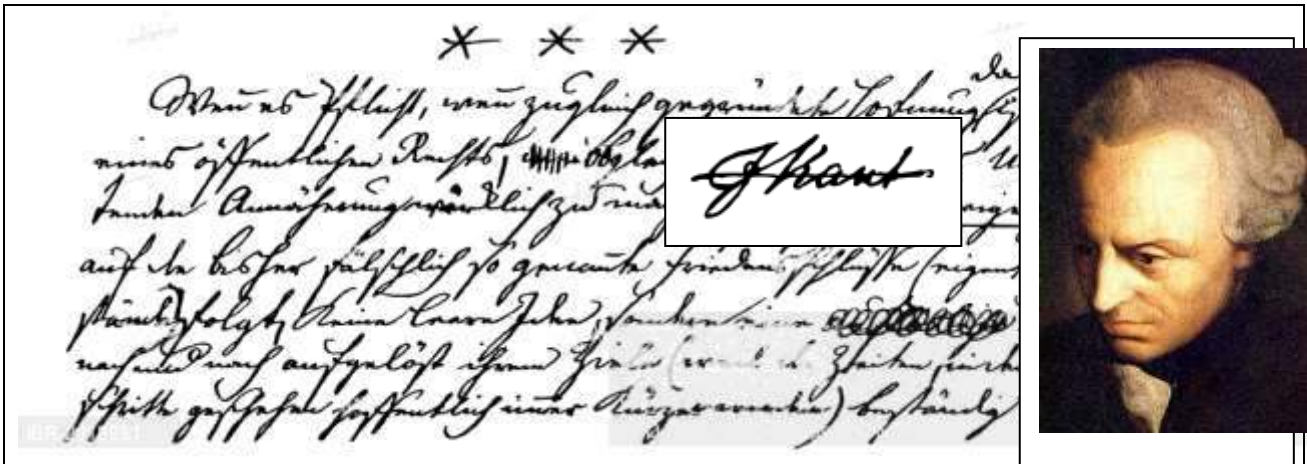 * * *
da
Weñ es Pflicht, weñ zugleich gegründete Hofnung
eines öffentlichen Rechts,
tenden Annäherung wirklich zu
auf die bisher fälschlich so genañte Friedensschlüsse (eigent
stände) folgt, keine leere Idee, sondern eine
nach und nach aufgelöst ihrem Ziele (weil die Zeiten in de
schritte geschehen hoffentlich imer kürzer werden) beständig
J Kant